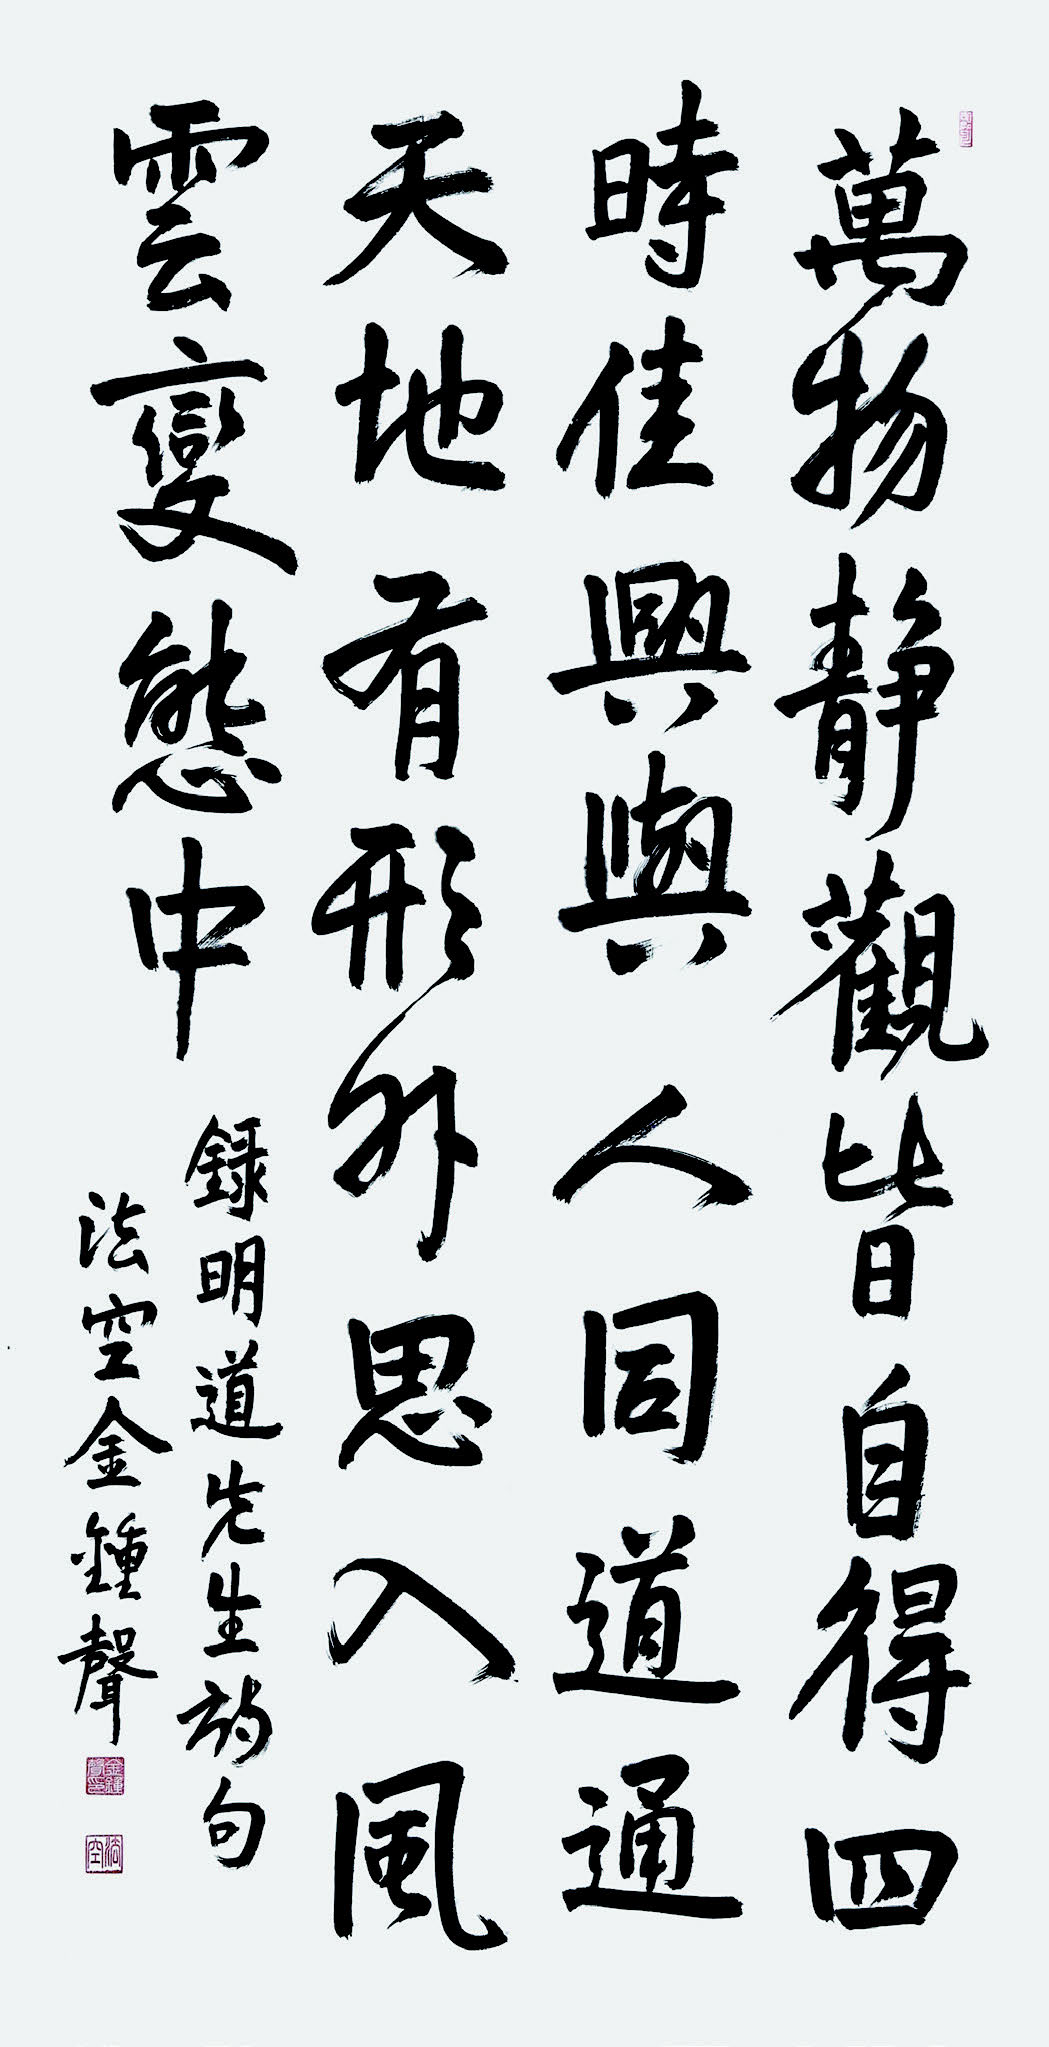 萬物靜觀皆自得四
時佳興與人同道通
天地有形外思入風
雲變態中
錄明道先生詩句
法空金鍾聲
金鍾聲印
法空